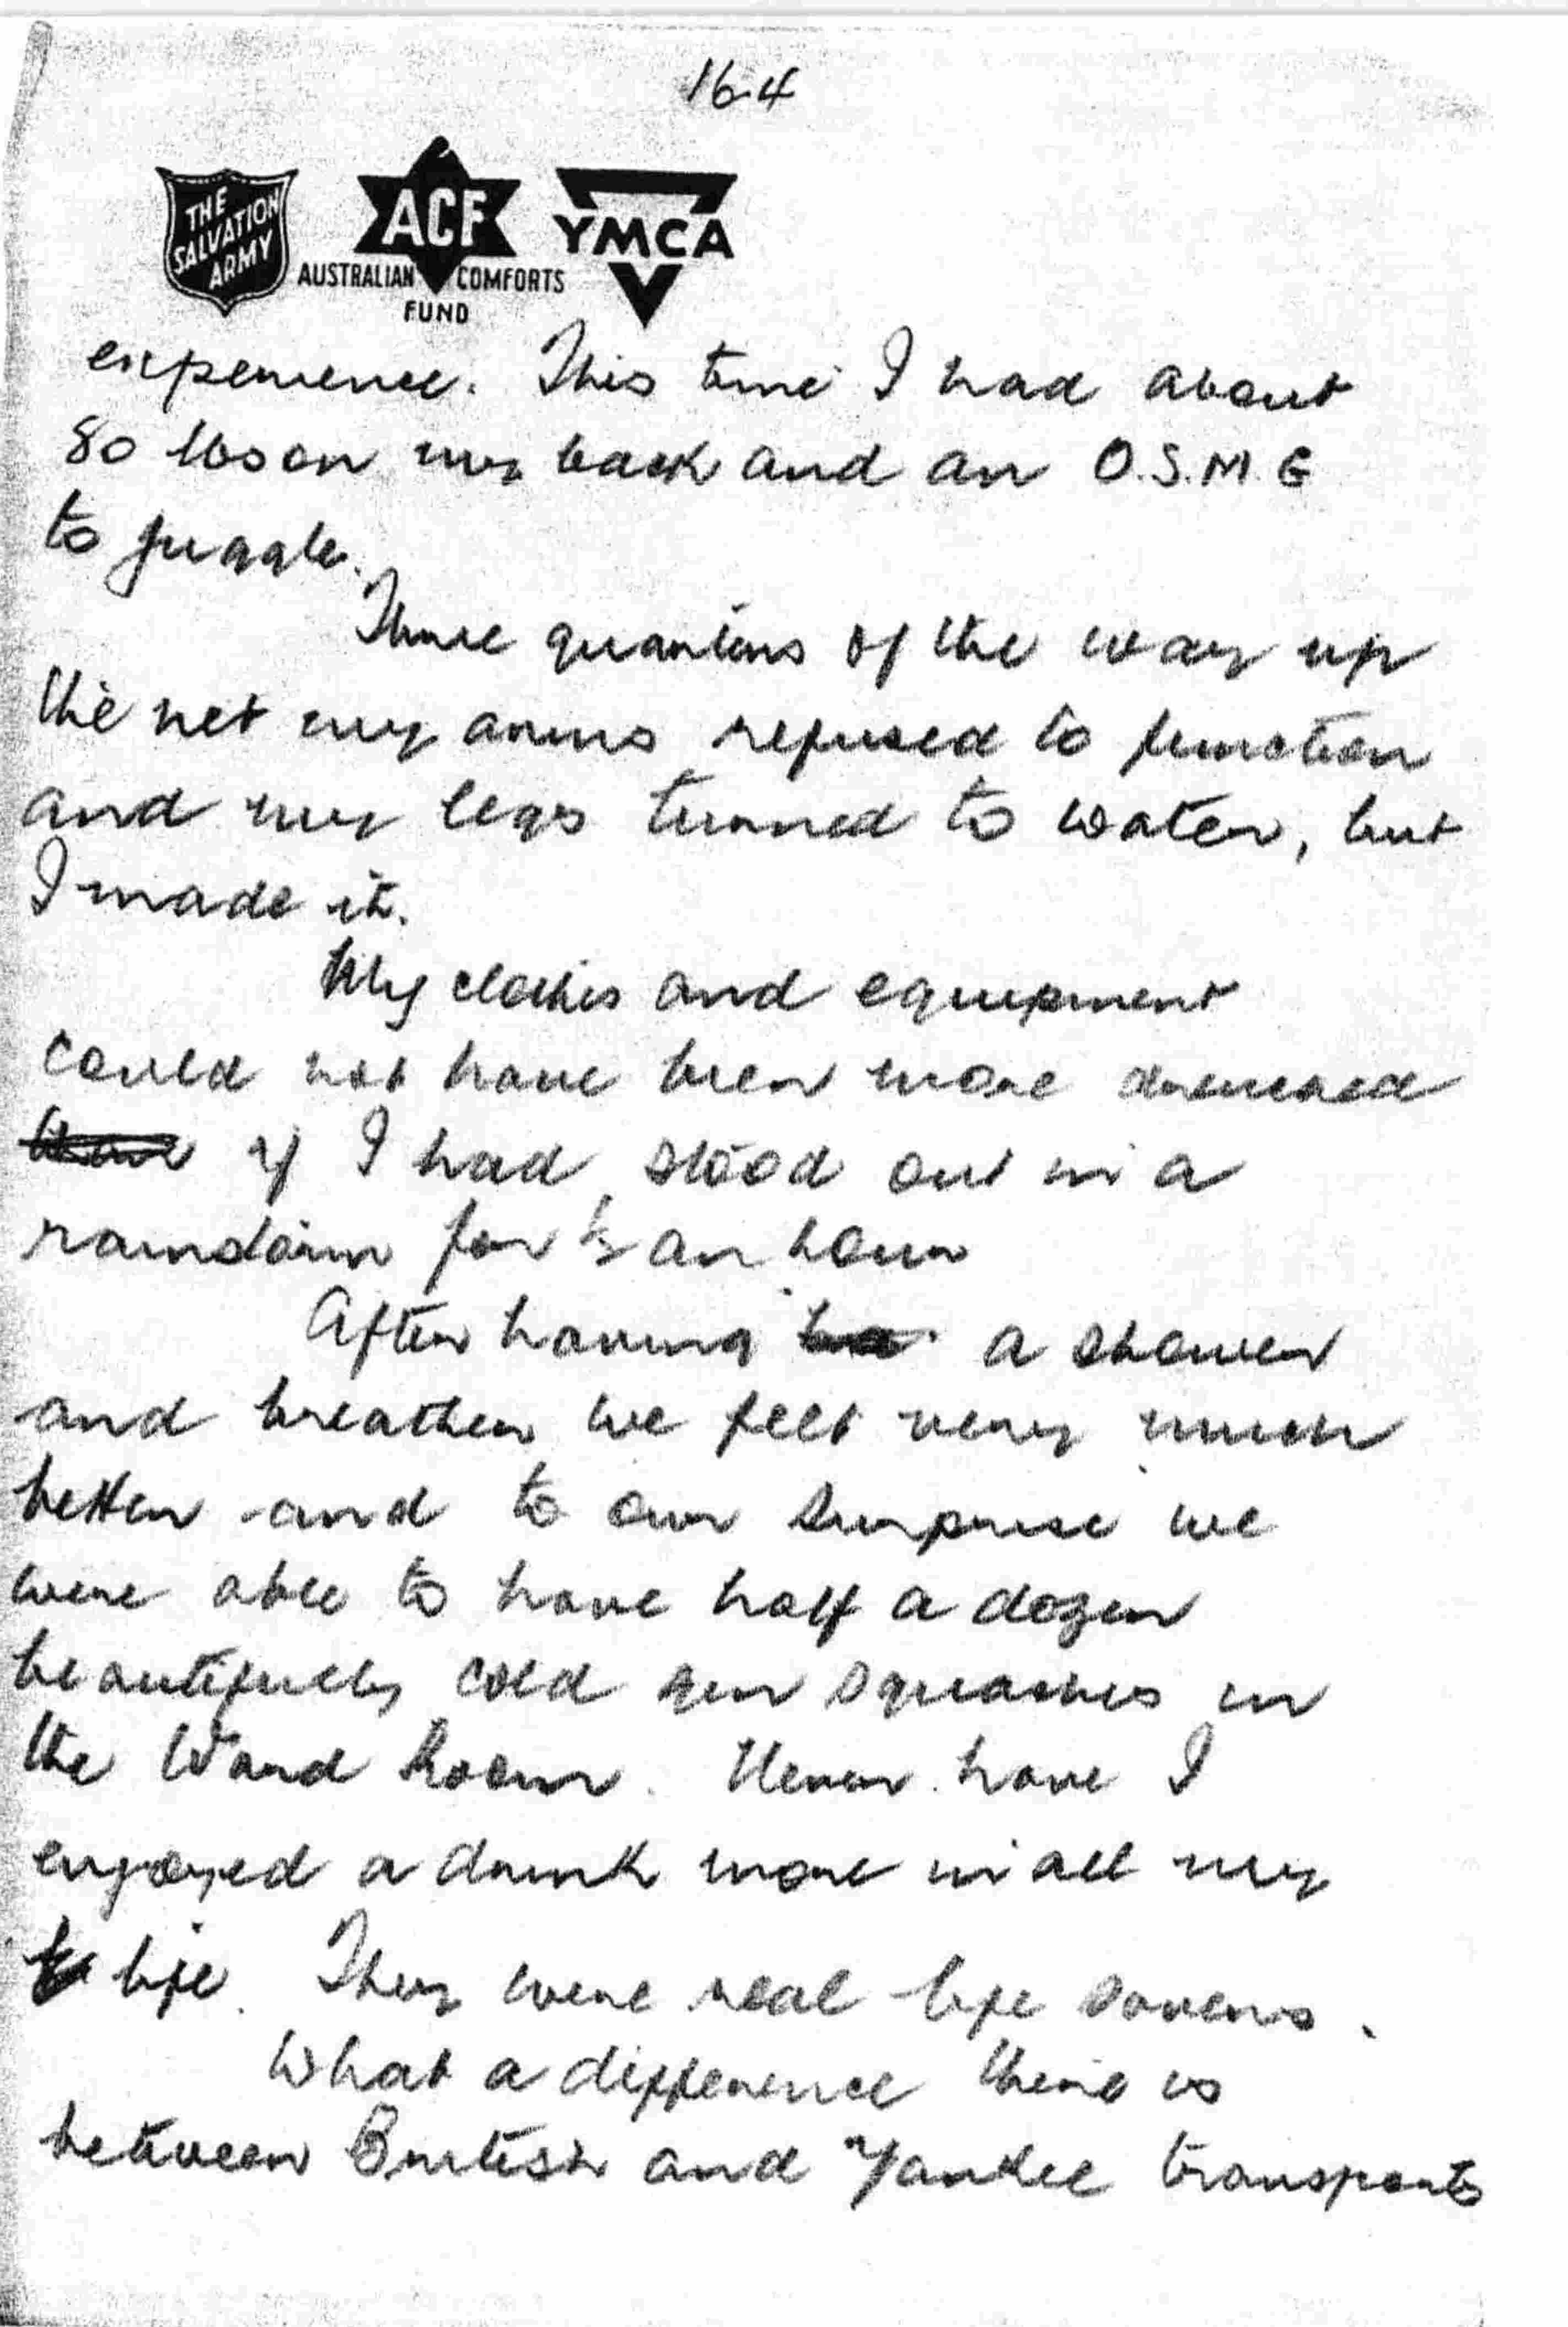 164
THE SALVATION ARMY
ACF
AUSTRALIAN COMFORTS FUND
YMCA
experience. This time I had about
80 lbs on my back and an O.S.M.G
to juggle.
Three quarters of the way up
the net my arms refused to function
and my legs turned to water, but
I made it.
My clothes and equipment
could not have been more drenched
than if I had stood out in a
rainstorm for ½ an hour
After having ha a shower
and breather we felt very much
better and to our surprise we
were able to have half a dozen
beautifully cold gin squashes in
the Ward Room. Never have I
enjoyed a drink more in all my
life. They were real life savers.
What a difference there is
between British and Yankee transports